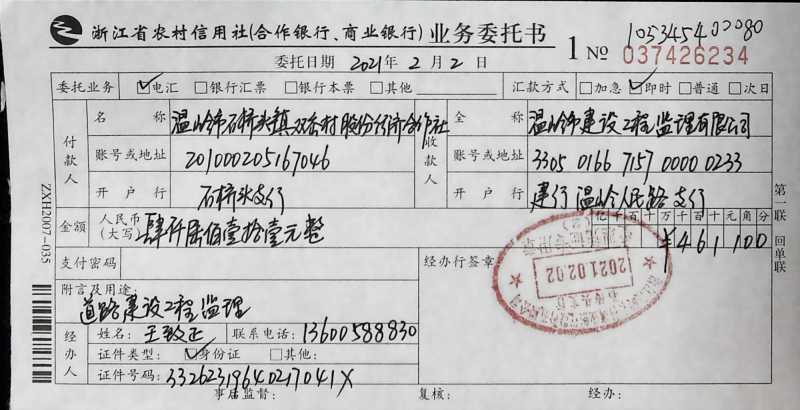 浙江省农村信用社(合作银行、商业银行)业务委托书
1 № 037426234
委托日期 2021年 2月 2日
委托业务 ☑电汇 □银行汇票 □银行本票 □其他 汇款方式 □加急 ☑即时 □普通 □次日
付款人 名称 温岭市石桥头镇 村股份经济合作社
收款人 全称 温岭市建设工程监理有限公司
账号或地址 201000205167046
账号或地址 3305 0166 7157 0000 0233
开户行 石桥头支行
开户行 建行温岭人民路支行
金额 人民币(大写) 肆仟陆佰壹拾壹元整
亿千百十万千百十元角分
¥461100
支付密码
经办行签章
附言及用途:
道路建设工程监理
2021.02.02
经办人 姓名: 王致正 联系电话: 13600588830
证件类型: ☑身份证 □其他:
证件号码: 33262319640217041X
事后监督: 复核: 经办:
ZXH2007-035
第一联 回单联